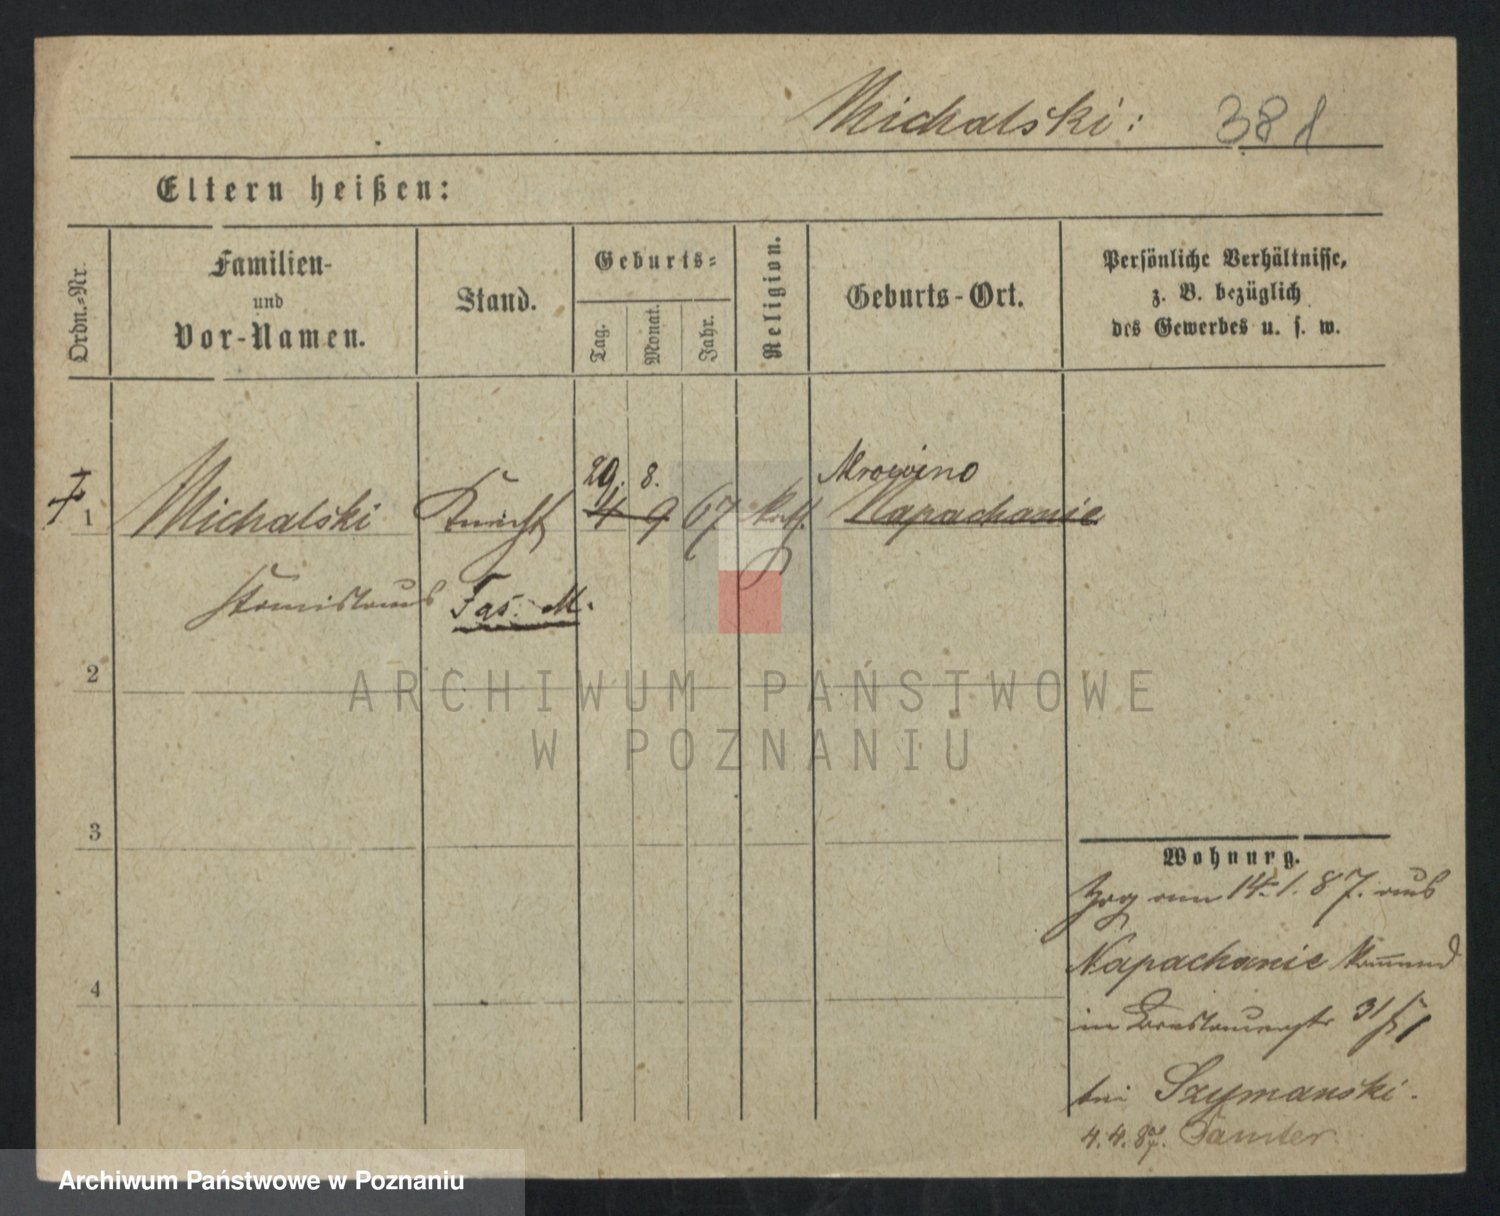 Michalski: 381
Eltern heißen:
Ordn.-Nr.
Familien-
und
Vor-Namen.
Stand.
Geburts-
Tag.
Monat.
Jahr.
Religion.
Geburts-Ort.
Persönliche Verhältnisse,
z. B. bezüglich
des Gewerbes u. s. w.
29. 8. Mrowino
1 Michalski Knecht 4 9 67 kath. Napachanie
Stanislaus
2
3
4
Wohnung.
Zog am 14.1.87. aus
Napachanie kommend
in Breslauerstr 31
bei Szymanski.
4.4.87. Samter
ARCHIWUM PAŃSTWOWE
W POZNANIU
Archiwum Państwowe w Poznaniu